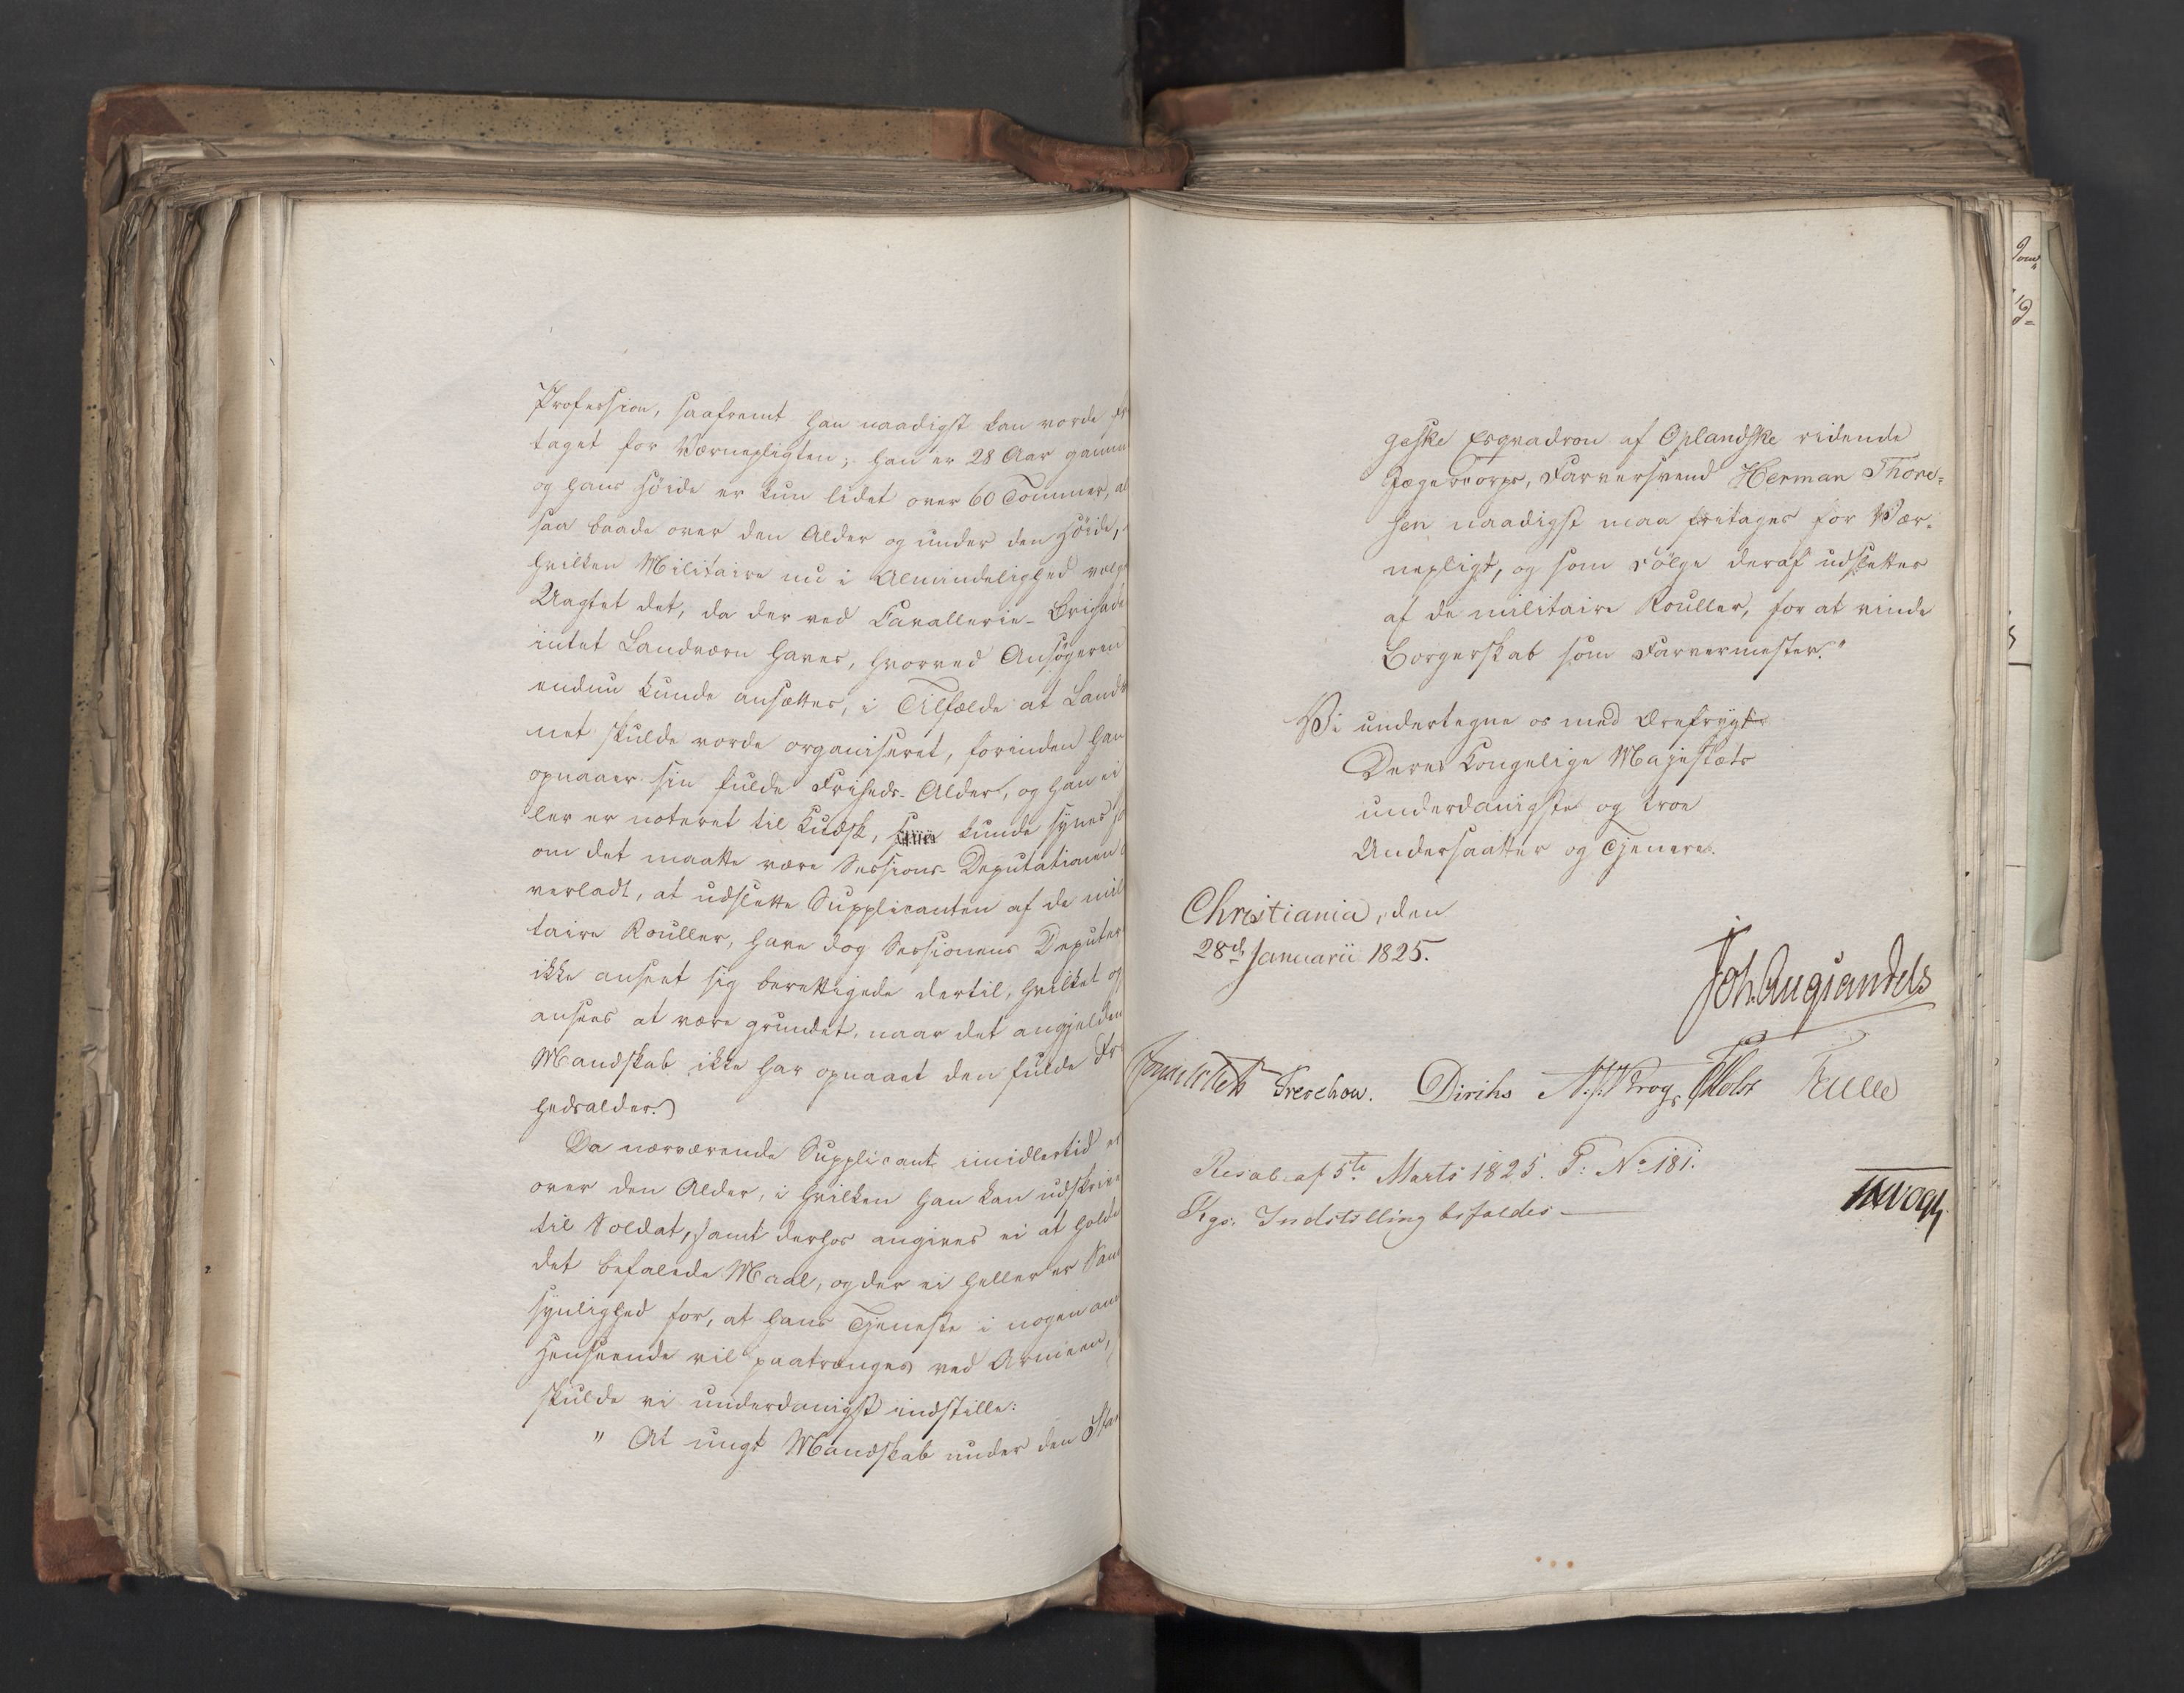 Profession, saafremt han naadigst kan vorde fri
taget for Værnepligten; han er 28 Aar gamm
og hans Höide er kun lidet over 60 Tommer, al
saa baade over den Alder og under den Höide, i
hvilken Militaire nu i Almindelighed vælg
Uagtet det, da der ved Cavallerie-Brigade
intet Landværn haves, hvorved Ansögeren
endnu kunde ansættes, i Tilfælde at Landv
net skulde vorde organiseret, forinden han
opnaaer sin fulde Friheds-Alder, og han ei
ler er noteret til Kudsk, kunde synes so
om det maatte være Sessions-Deputationen o
verladt, at udslette Supplicanten af de mili
taire Rouller, have dog Sessionens Deputer
ikke anseet sig berettigede dertil, hvilket og
ansees at være grundet, naar det angjelden
Mandskab ikke har opnaaet den fulde Fri
hedsalder.)
Da nærværende Supplicant imidlertid er
over den Alder, i hvilken han kan udskrive
til Soldat, samt derhos angives ei at holde
det befalede Maal, og der ei heller er Sand
synlighed for, at hans Tjeneste i nogen an
Henseende vil paatrænges ved Armeen,
skulde vi underdanigst indstille:
" At ungt Mandskab under den Stan
geske Esqvadron af Oplandske ridende
Jægercorps, Farversvend Herman Thore=
sen naadigst maa fritages for Vær=
nepligt, og som Fölge deraf udslettes
af de militaire Rouller, for at vinde
Borgerskab som Farvermester."
Vi undertegne os med Ærefrygt
Deres Kongelige Majestæts
underdanigste og troe
Undersaatter og Tjenere.
Christiania, den
28de Januarii 1825.
Joh. Aug. Sandels
Treschow. Diriks Krog Holst
Resol: af 5te Marts 1825. P: No 181.
Regs: Indstilling bifaldes